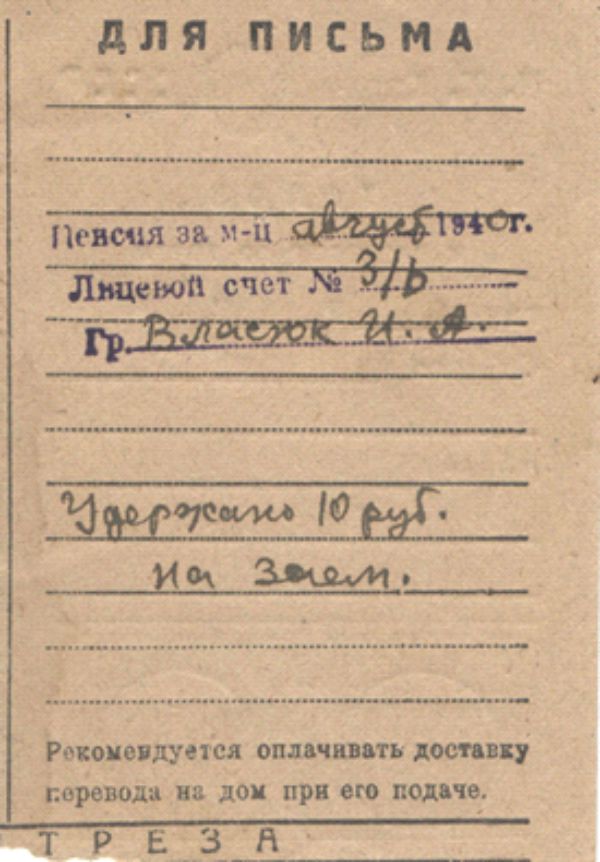 ДЛЯ ПИСЬМА
Пенсия за м-ц август 1940г.
Лицевой счет № 3/ь
Гр. Власюк И. А.
Удержано 10 руб.
на Заем.
Рекомендуется оплачивать доставку
перевода на дом при его подаче.
ТРЕЗА